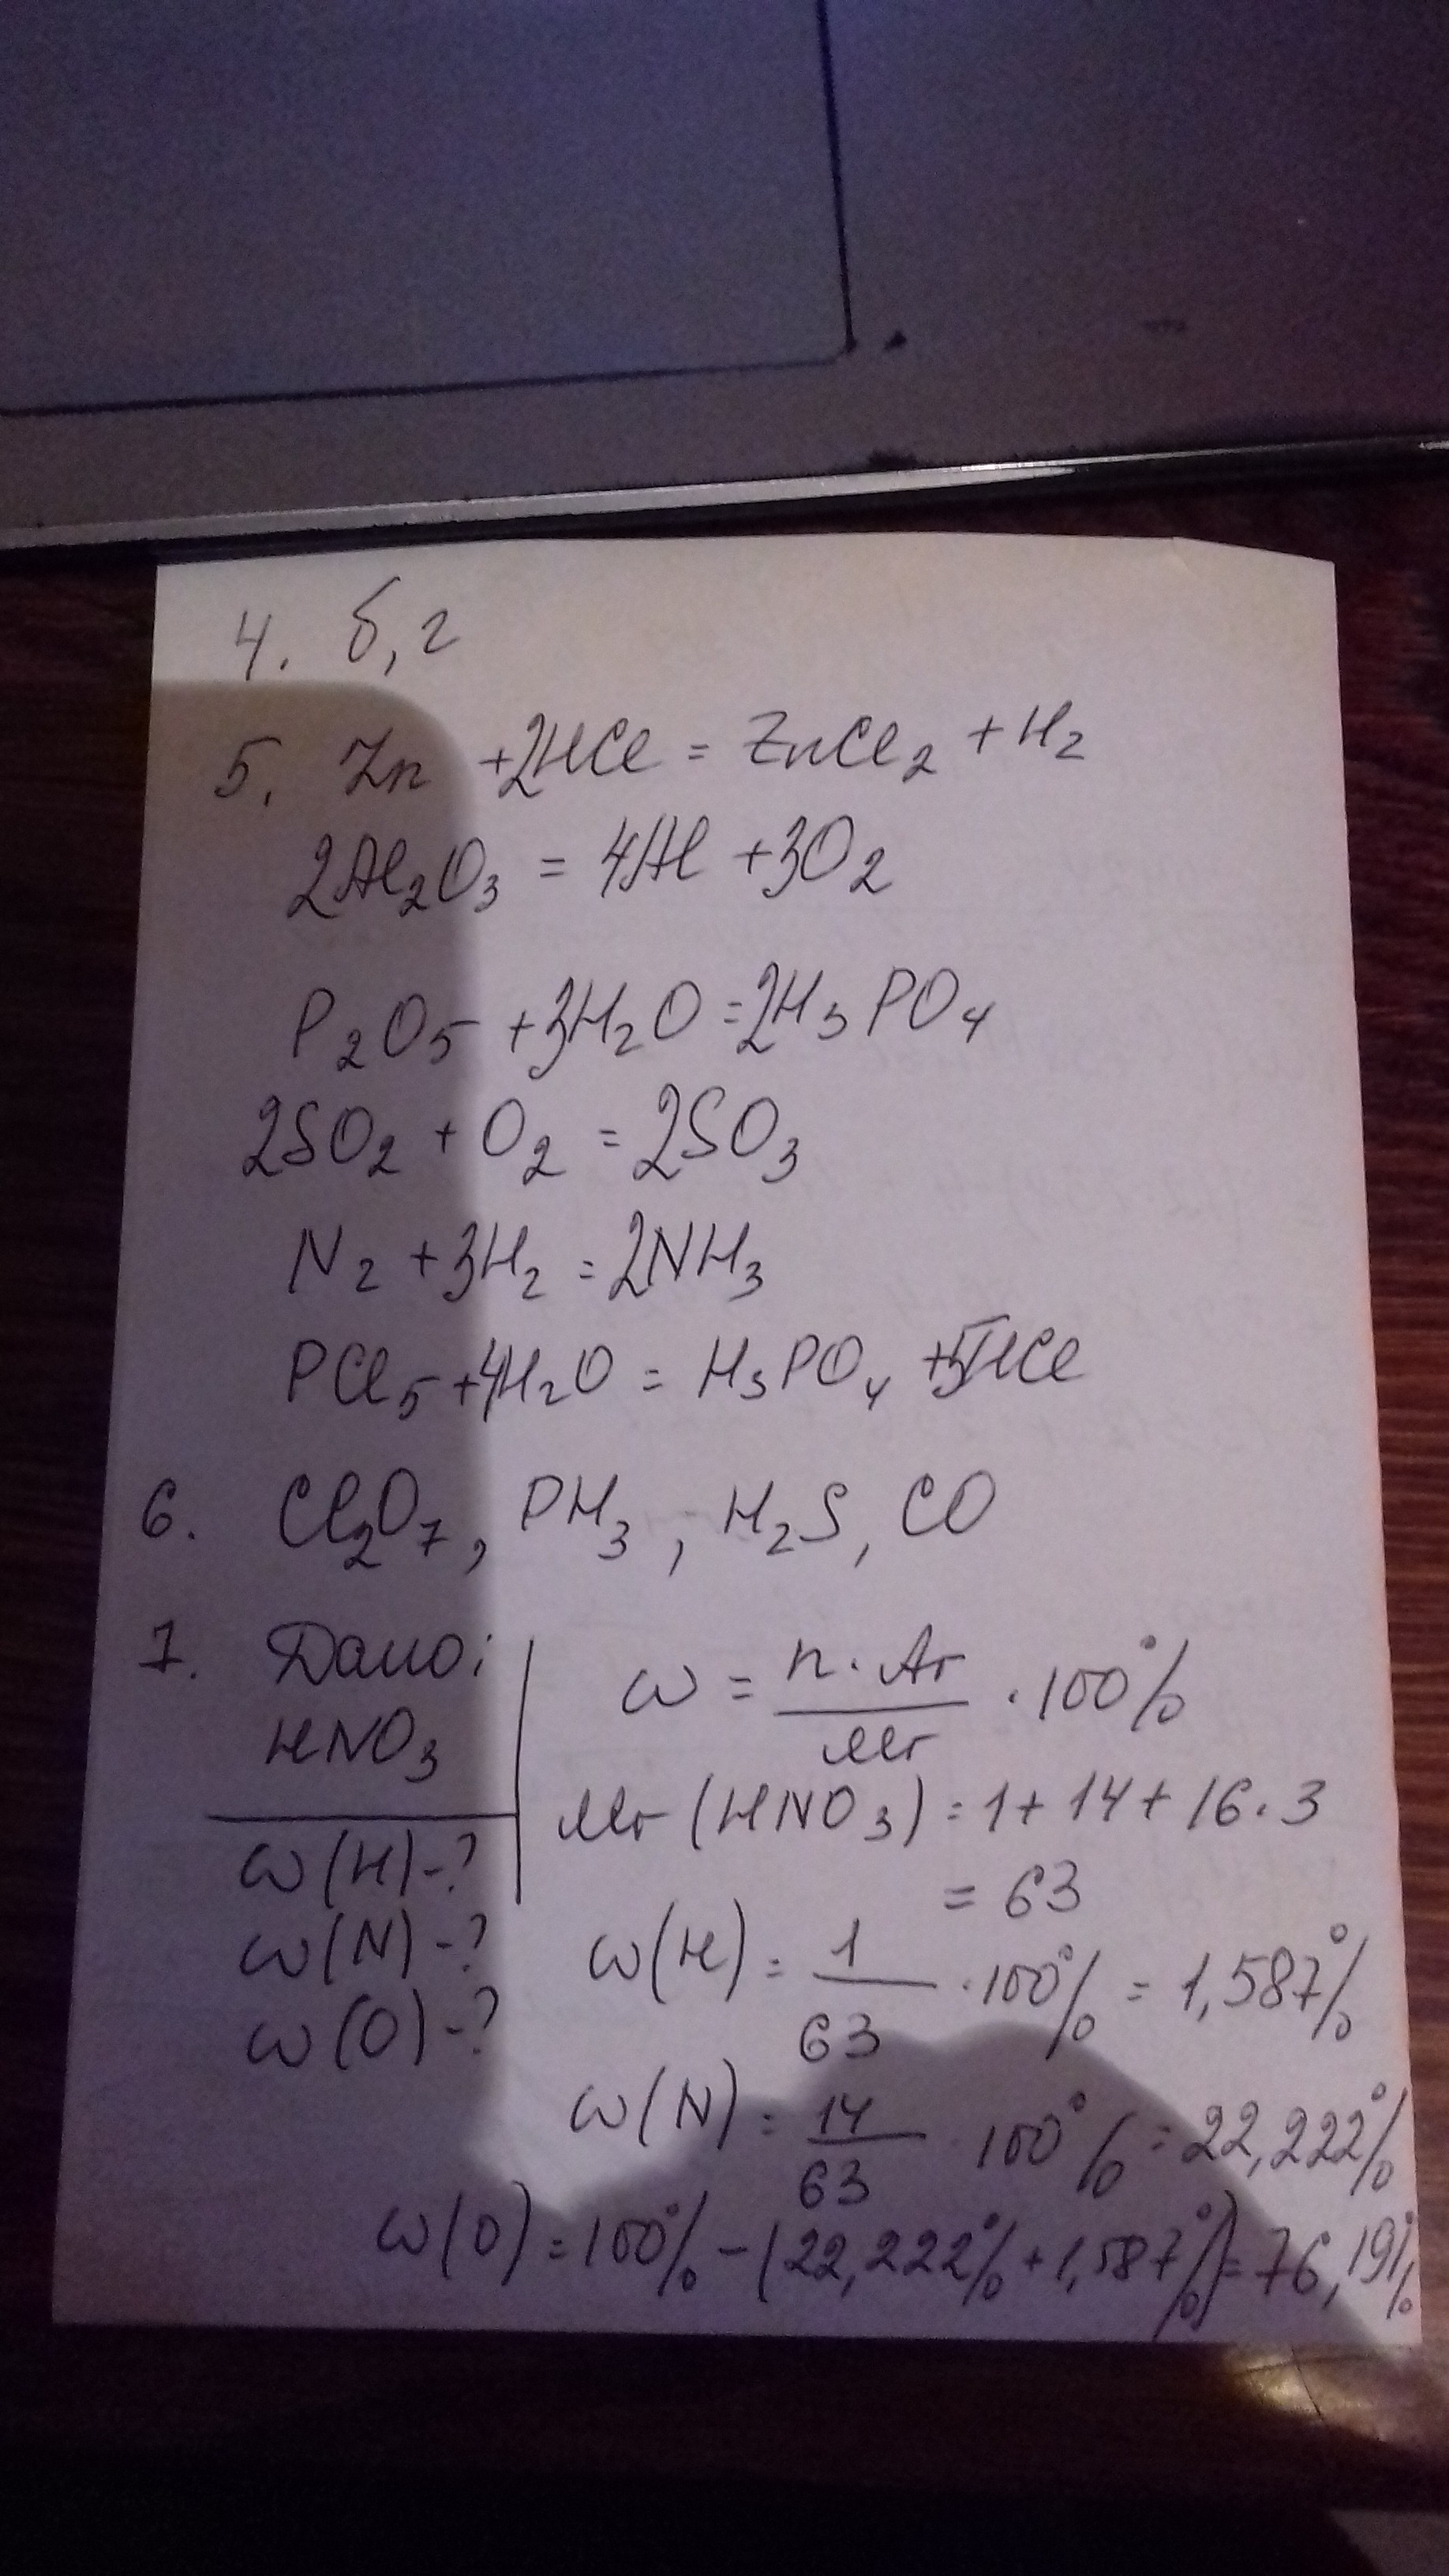 4. б, г
5. Zn + 2HCl = ZnCl₂ + H₂
2Al₂O₃ = 4Al + 3O₂
P₂O₅ + 3H₂O = 2H₃PO₄
2SO₂ + O₂ = 2SO₃
N₂ + 3H₂ = 2NH₃
PCl₅ + 4H₂O = H₃PO₄ + 5HCl
6. Cl₂O₇, PH₃, H₂S, CO
7. Дано:
HNO₃
ω(H) - ?
ω(N) - ?
ω(O) - ?
ω = n · Ar / Mr · 100%
Mr (HNO₃) = 1 + 14 + 16 · 3
= 63
ω(H) = 1 / 63 · 100% = 1,587%
ω(N) = 14 / 63 · 100% = 22,222%
ω(O) = 100% - (22,222% + 1,587%) = 76,191%